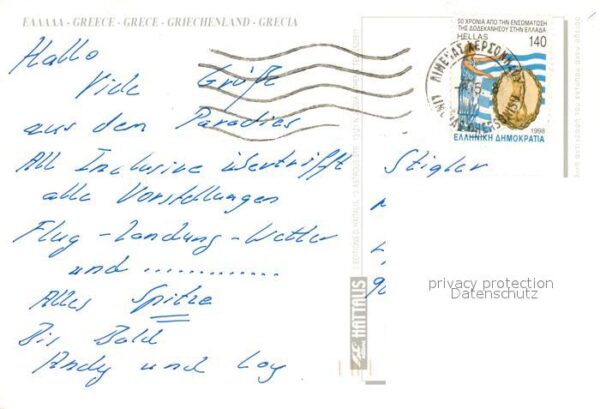 ΕΛΛΑΔΑ - GREECE - GRECE - GRIECHENLAND - GRECIA
Hallo
Viele Grüße
aus dem Paradies
All Inclusive übertrifft
alle Vorstellungen
Flug - Landung - Wetter
und .............
Alles Spitze
Bis Bald
Andy und
50 ΧΡΟΝΙΑ ΑΠΟ ΤΗΝ ΕΝΣΩΜΑΤΩΣΗ
ΤΗΣ ΔΩΔΕΚΑΝΗΣΟΥ ΣΤΗΝ ΕΛΛΑΔΑ
HELLAS 140
ΛΙΜΕΝΑΣ ΧΕΡΣΟΝΗΣΟΥ
1998
ΕΛΛΗΝΙΚΗ ΔΗΜΟΚΡΑΤΙΑ
Stigler
HATTALIS
privacy protection
Datenschutz